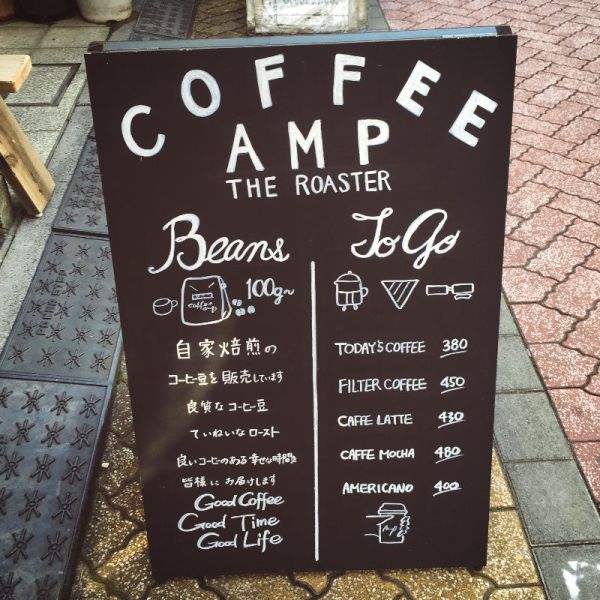 COFFEE
AMP
THE ROASTER
Beans
100g~
coffee
amp
自家焙煎の
コーヒー豆を販売しています
良質なコーヒー豆
ていねいなロースト
良いコーヒーのある幸せな時間を
皆様にお届けします
Good Coffee
Good Time
Good Life
To Go
TODAY'S COFFEE 380
FILTER COFFEE 450
CAFFE LATTE 430
CAFFE MOCHA 480
AMERICANO 400
Amp